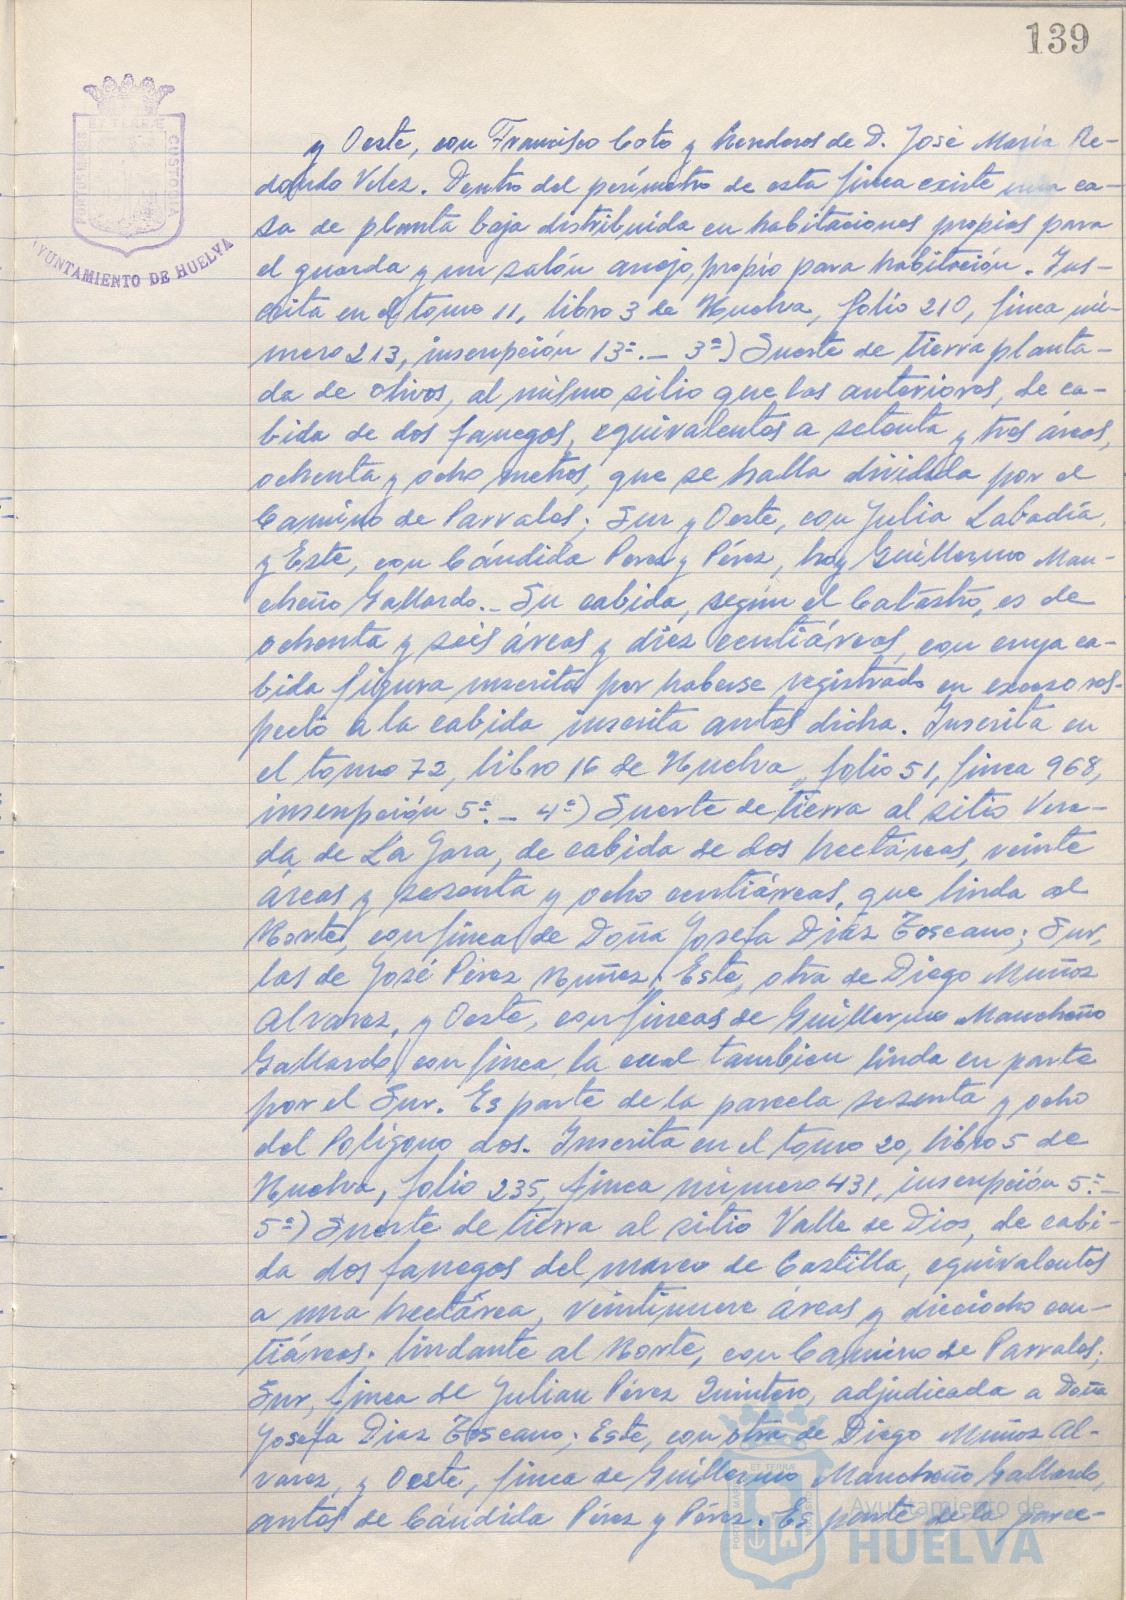 139
ET TERRÆ
CUSTODIA
AYUNTAMIENTO DE HUELVA
y Oeste, con Francisco Coto y herederos de D. José María Re-
dondo Velez. Dentro del perímetro de esta finca existe una ca-
sa de planta baja distribuída en habitaciones propias para
el guarda y un salón anejo, propio para habitación. Ins-
crita en el tomo 11, libro 3 de Huelva, folio 210, finca nú-
mero 213, inscripción 13ª.- 3ª) Suerte de tierra planta-
da de olivos, al mismo sitio que las anteriores, de ca-
bida de dos fanegas, equivalentes a setenta y tres áreas,
ochenta y ocho metros, que se halla dividida por el
Camino de Parrales; Sur y Oeste, con Julia Labadía,
y Este, con Cándida Perez y Pérez, hoy Guillermo Man-
cheño Gallardo.- Su cabida, según el Catastro, es de
ochenta y seis áreas y diez centiáreas, con cuya ca-
bida figura inscrita por haberse registrado en exceso res-
pecto a la cabida inscrita antes dicha. Inscrita en
el tomo 72, libro 16 de Huelva, folio 51, finca 968,
inscripción 5ª.- 4ª) Suerte de tierra al sitio Vere-
da de La Jara, de cabida de dos hectáreas, veinte
áreas y sesenta y ocho centiáreas, que linda al
Norte, con finca de Doña Josefa Díaz Toscano; Sur,
las de José Pérez Nuñez; Este, otra de Diego Muñoz
Alvarez, y Oeste, con fincas de Guillermo Mancheño
Gallardo, con finca la cual tambien linda en parte
por el Sur. Es parte de la parcela sesenta y ocho
del Polígono dos. Inscrita en el tomo 20, libro 5 de
Huelva, folio 235, finca número 431, inscripción 5ª.-
5ª) Suerte de tierra al sitio Valle de Dios, de cabi-
da dos fanegas del marco de Castilla, equivalentes
a una hectárea, veintinueve áreas y dieciocho cen-
tiáreas; lindante al Norte, con Camino de Parrales;
Sur, finca de Julian Pérez Quintero, adjudicada a Doña
Josefa Diaz Toscano; Este, con otra de Diego Muñoz Al-
varez, y Oeste, finca de Guillermo Mancheño Gallardo,
antes de Cándida Pérez y Pérez. Es parte de la parce-
ET TERRÆ
Ayuntamiento de
HUELVA